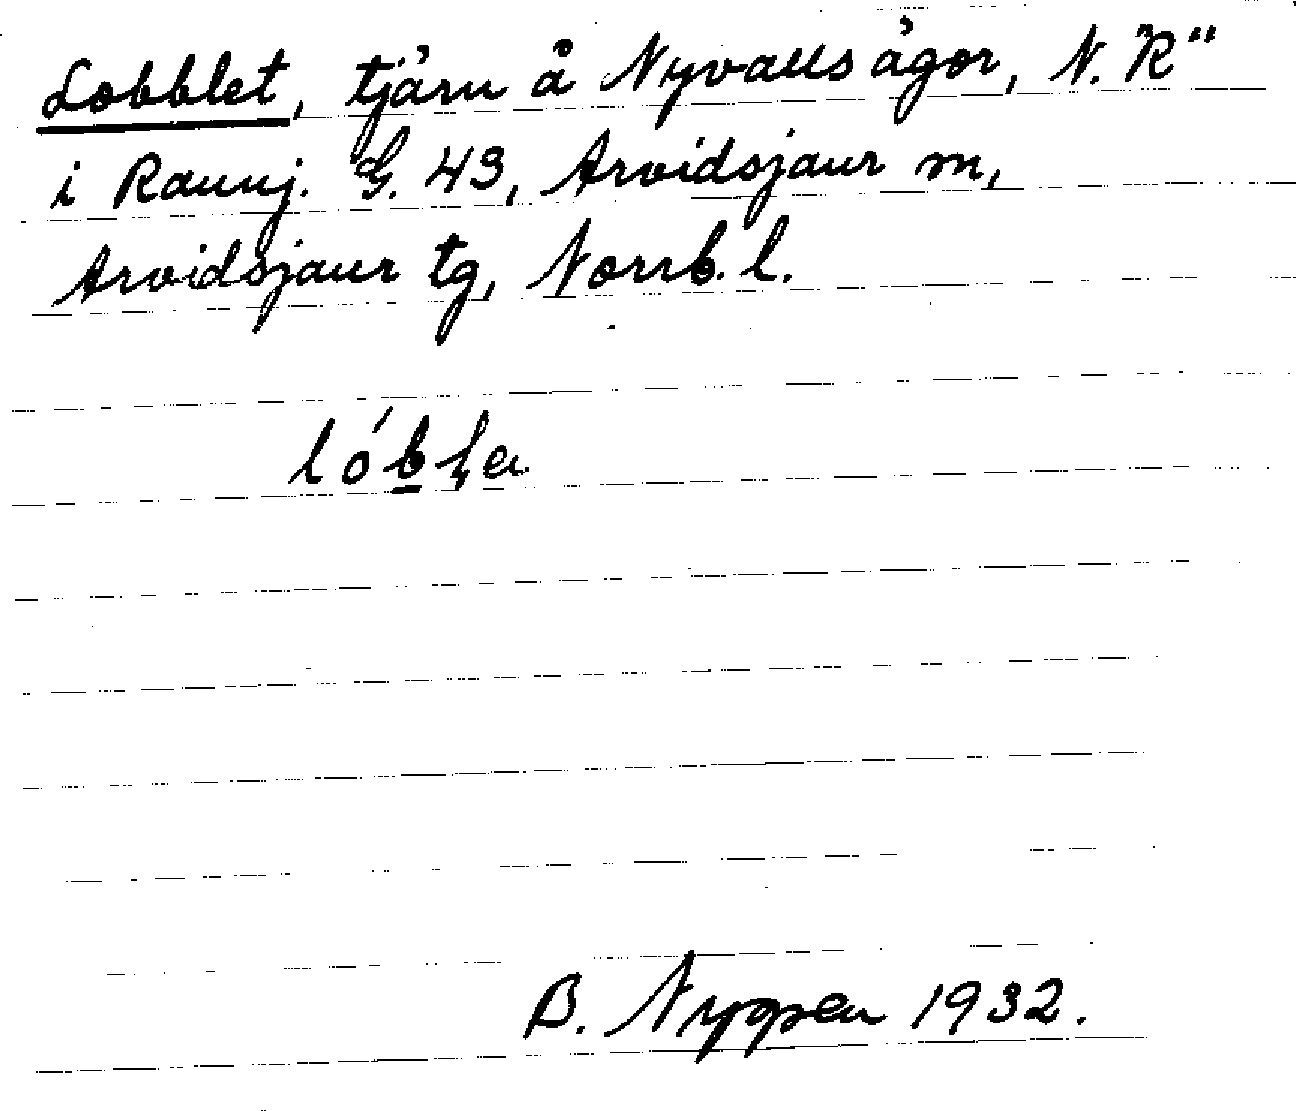 Lobblet, tjärn å Nyvalls ägor, N. "R"
i Raunj. G. 43, Arvidsjaur sn,
Arvidsjaur tg, Norrb. l.
B. Nygren 1932.